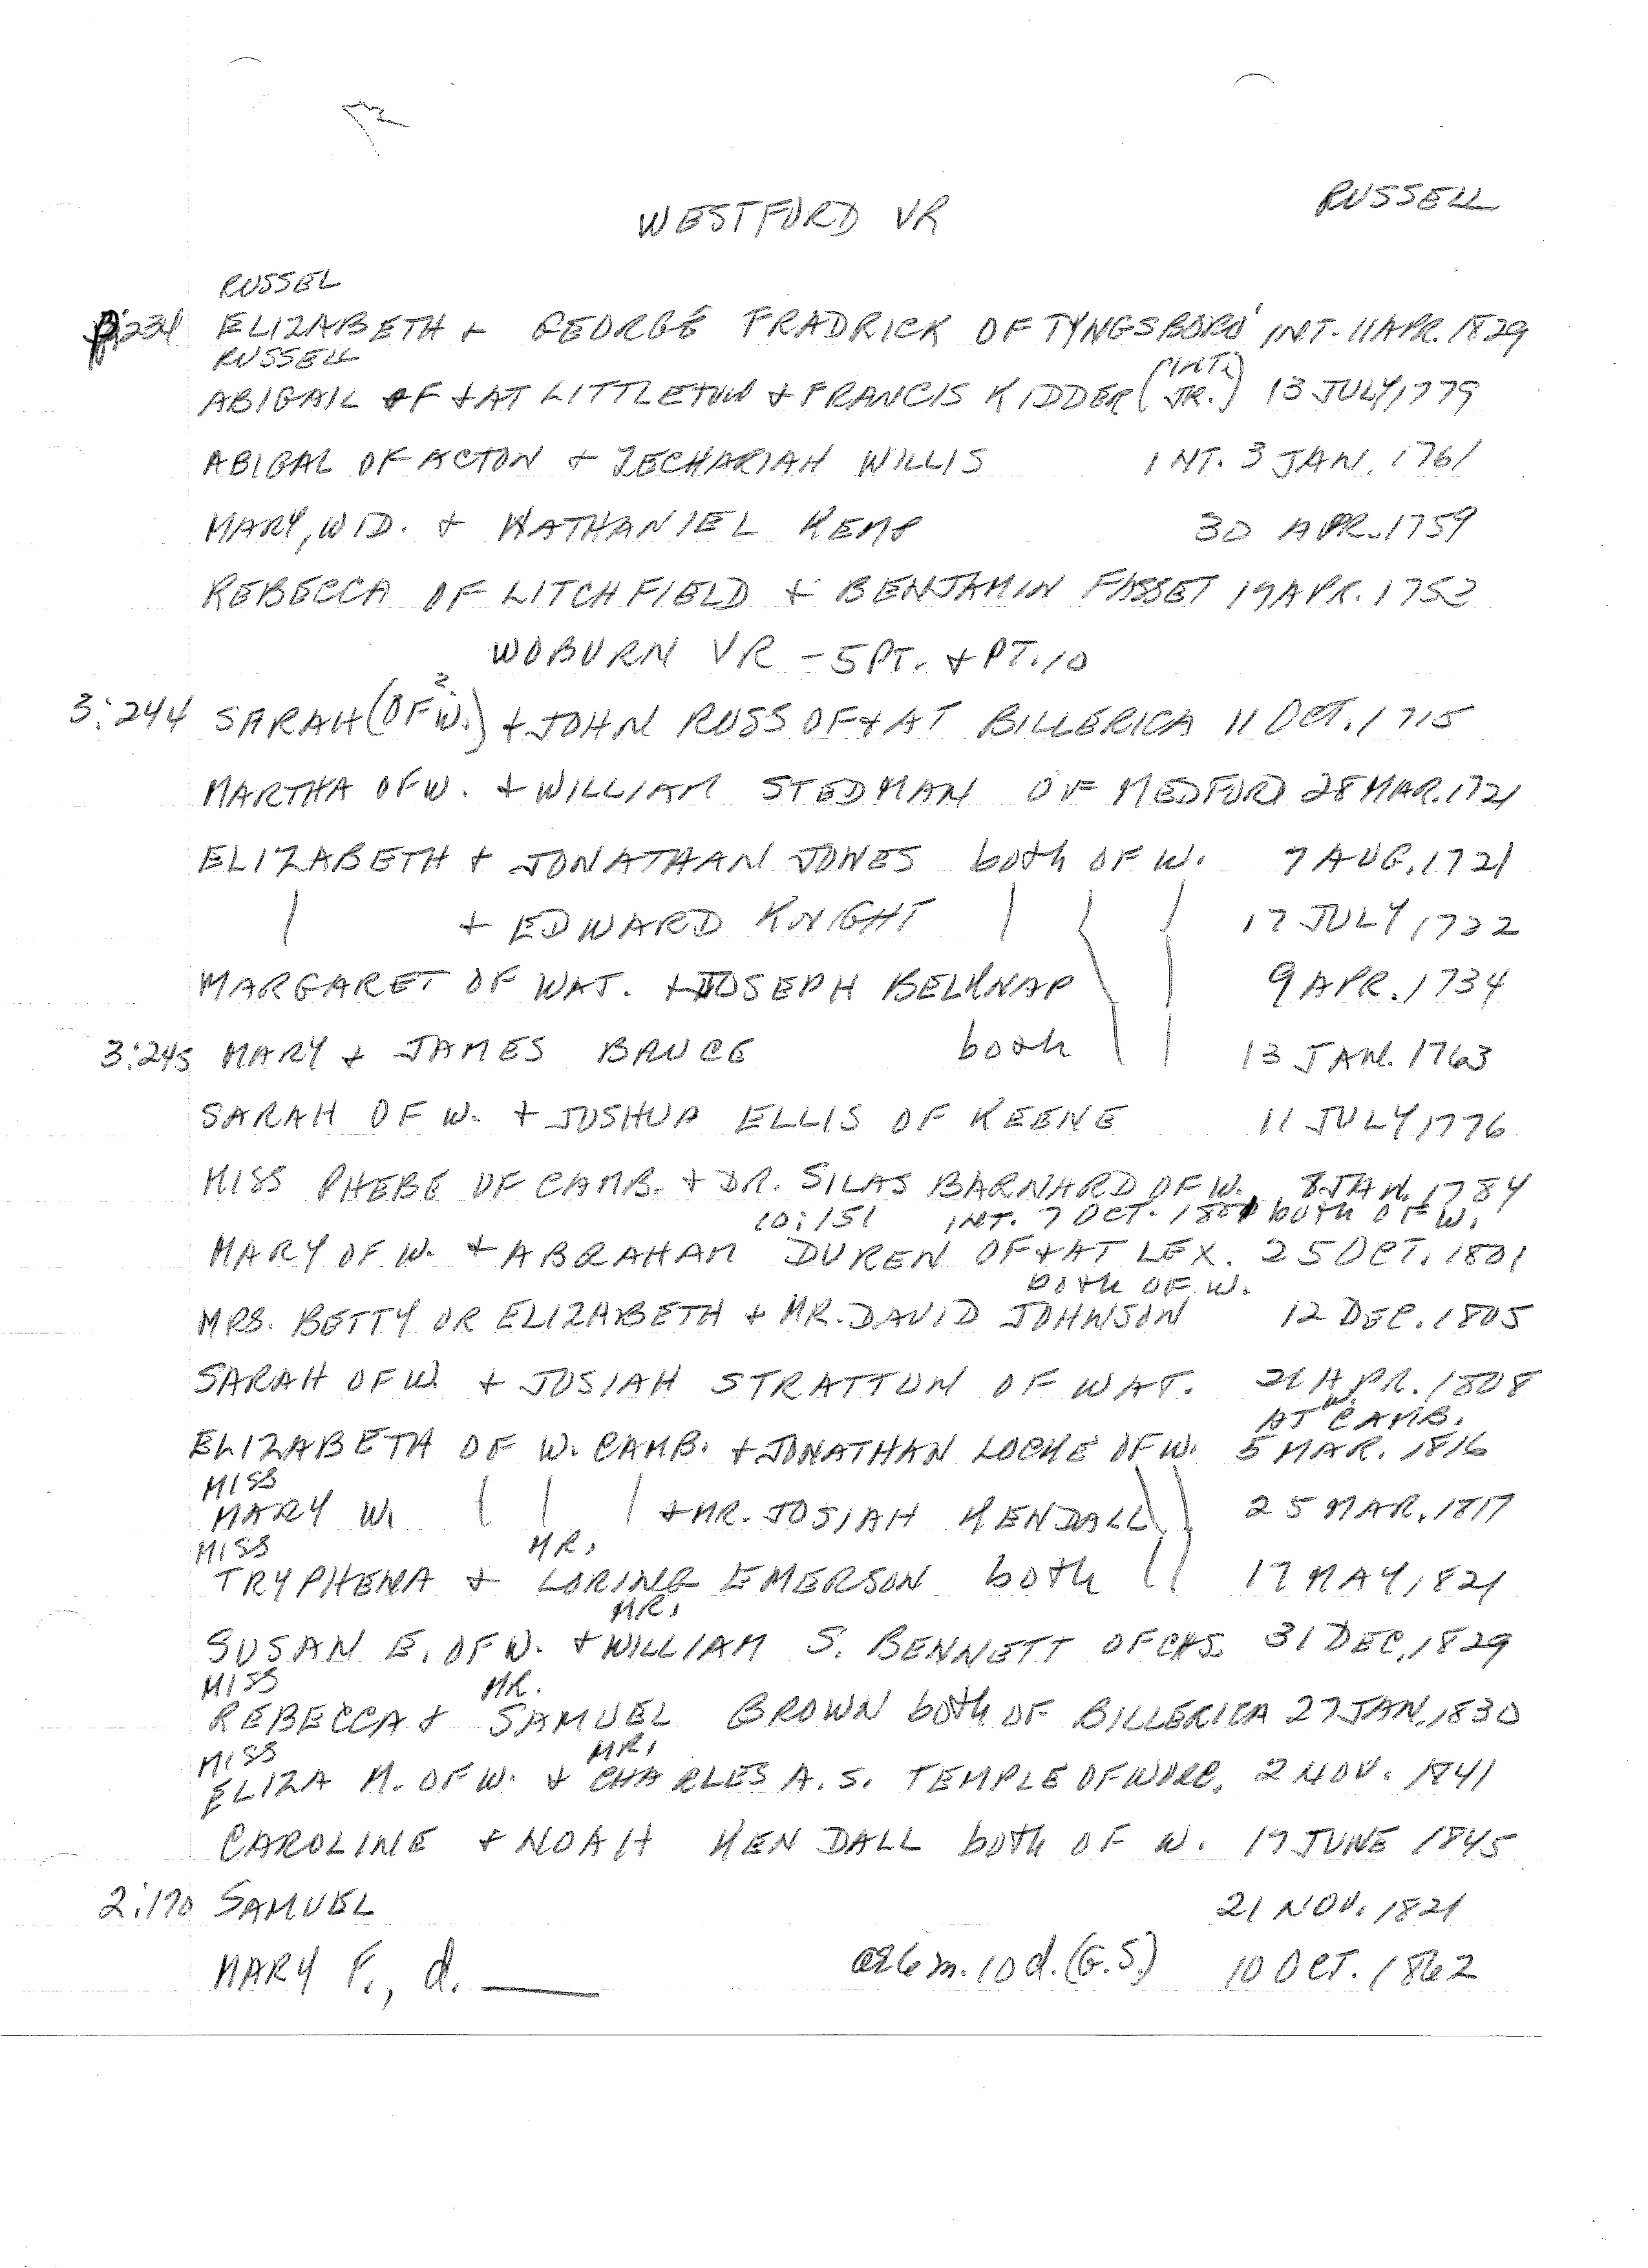 RUSSELL
WESTFORD VR
RUSSEL
p:234 ELIZABETH + GEORGE FRADRICK OF TYNGSBORO' INT. 11 APR. 1829
RUSSELL
(INT.
ABIGAIL OF + AT LITTLETON + FRANCIS KIDDER (JR.) 13 JULY 1779
ABIGAL OF ACTON + ZECHARIAH WILLIS INT. 3 JAN. 1761
MARY, WID. + NATHANIEL KEMP 30 APR. 1759
REBECCA OF LITCHFIELD + BENJAMIN FASSET 19 APR. 1752
WOBURN VR - 5 PT. + PT. 10
3:244 SARAH (OF W.)² + JOHN ROSS OF + AT BILLERICA 11 OCT. 1715
MARTHA OF W. + WILLIAM STEDMAN OF MEDFORD 28 MAR. 1721
ELIZABETH + JONATHAN JONES both OF W. 7 AUG. 1721
| + EDWARD KNIGHT | | | 17 JULY 1722
MARGARET OF WAT. + JOSEPH BELKNAP | | 9 APR. 1734
3:245 MARY + JAMES BRUCE both | | 13 JAN. 1763
SARAH OF W. + JOSHUA ELLIS OF KEENE 11 JULY 1776
MISS PHEBE OF CAMB. + DR. SILAS BARNARD OF W. 8 JAN. 1784
10:151 INT. 7 OCT. 1801 both OF W.
MARY OF W. + ABRAHAM DUREN OF + AT LEX. 25 OCT. 1801
both OF W.
MRS. BETTY OR ELIZABETH + MR. DAVID JOHNSON 12 DEC. 1805
SARAH OF W. + JOSIAH STRATTON OF WAT. 21 APR. 1808
AT W. CAMB.
ELIZABETH OF W. CAMB. + JONATHAN LOCKE OF W. 5 MAR. 1816
MISS
MARY W. | | | + MR. JOSIAH KENDALL | | 25 MAR. 1817
MISS MR.
TRYPHENA + LORING EMERSON both | | 17 MAY 1821
MR.
SUSAN E. OF W. + WILLIAM S. BENNETT OF CHS. 31 DEC. 1829
MISS MR.
REBECCA + SAMUEL BROWN both OF BILLERICA 27 JAN. 1830
MISS MR.
ELIZA M. OF W. + CHARLES A. S. TEMPLE OF WORC. 2 NOV. 1841
CAROLINE + NOAH KENDALL both OF W. 19 JUNE 1845
2:170 SAMUEL 21 NOV. 1821
MARY F., d. ___ ae 6 m. 10 d. (G.S.) 10 OCT. 1862